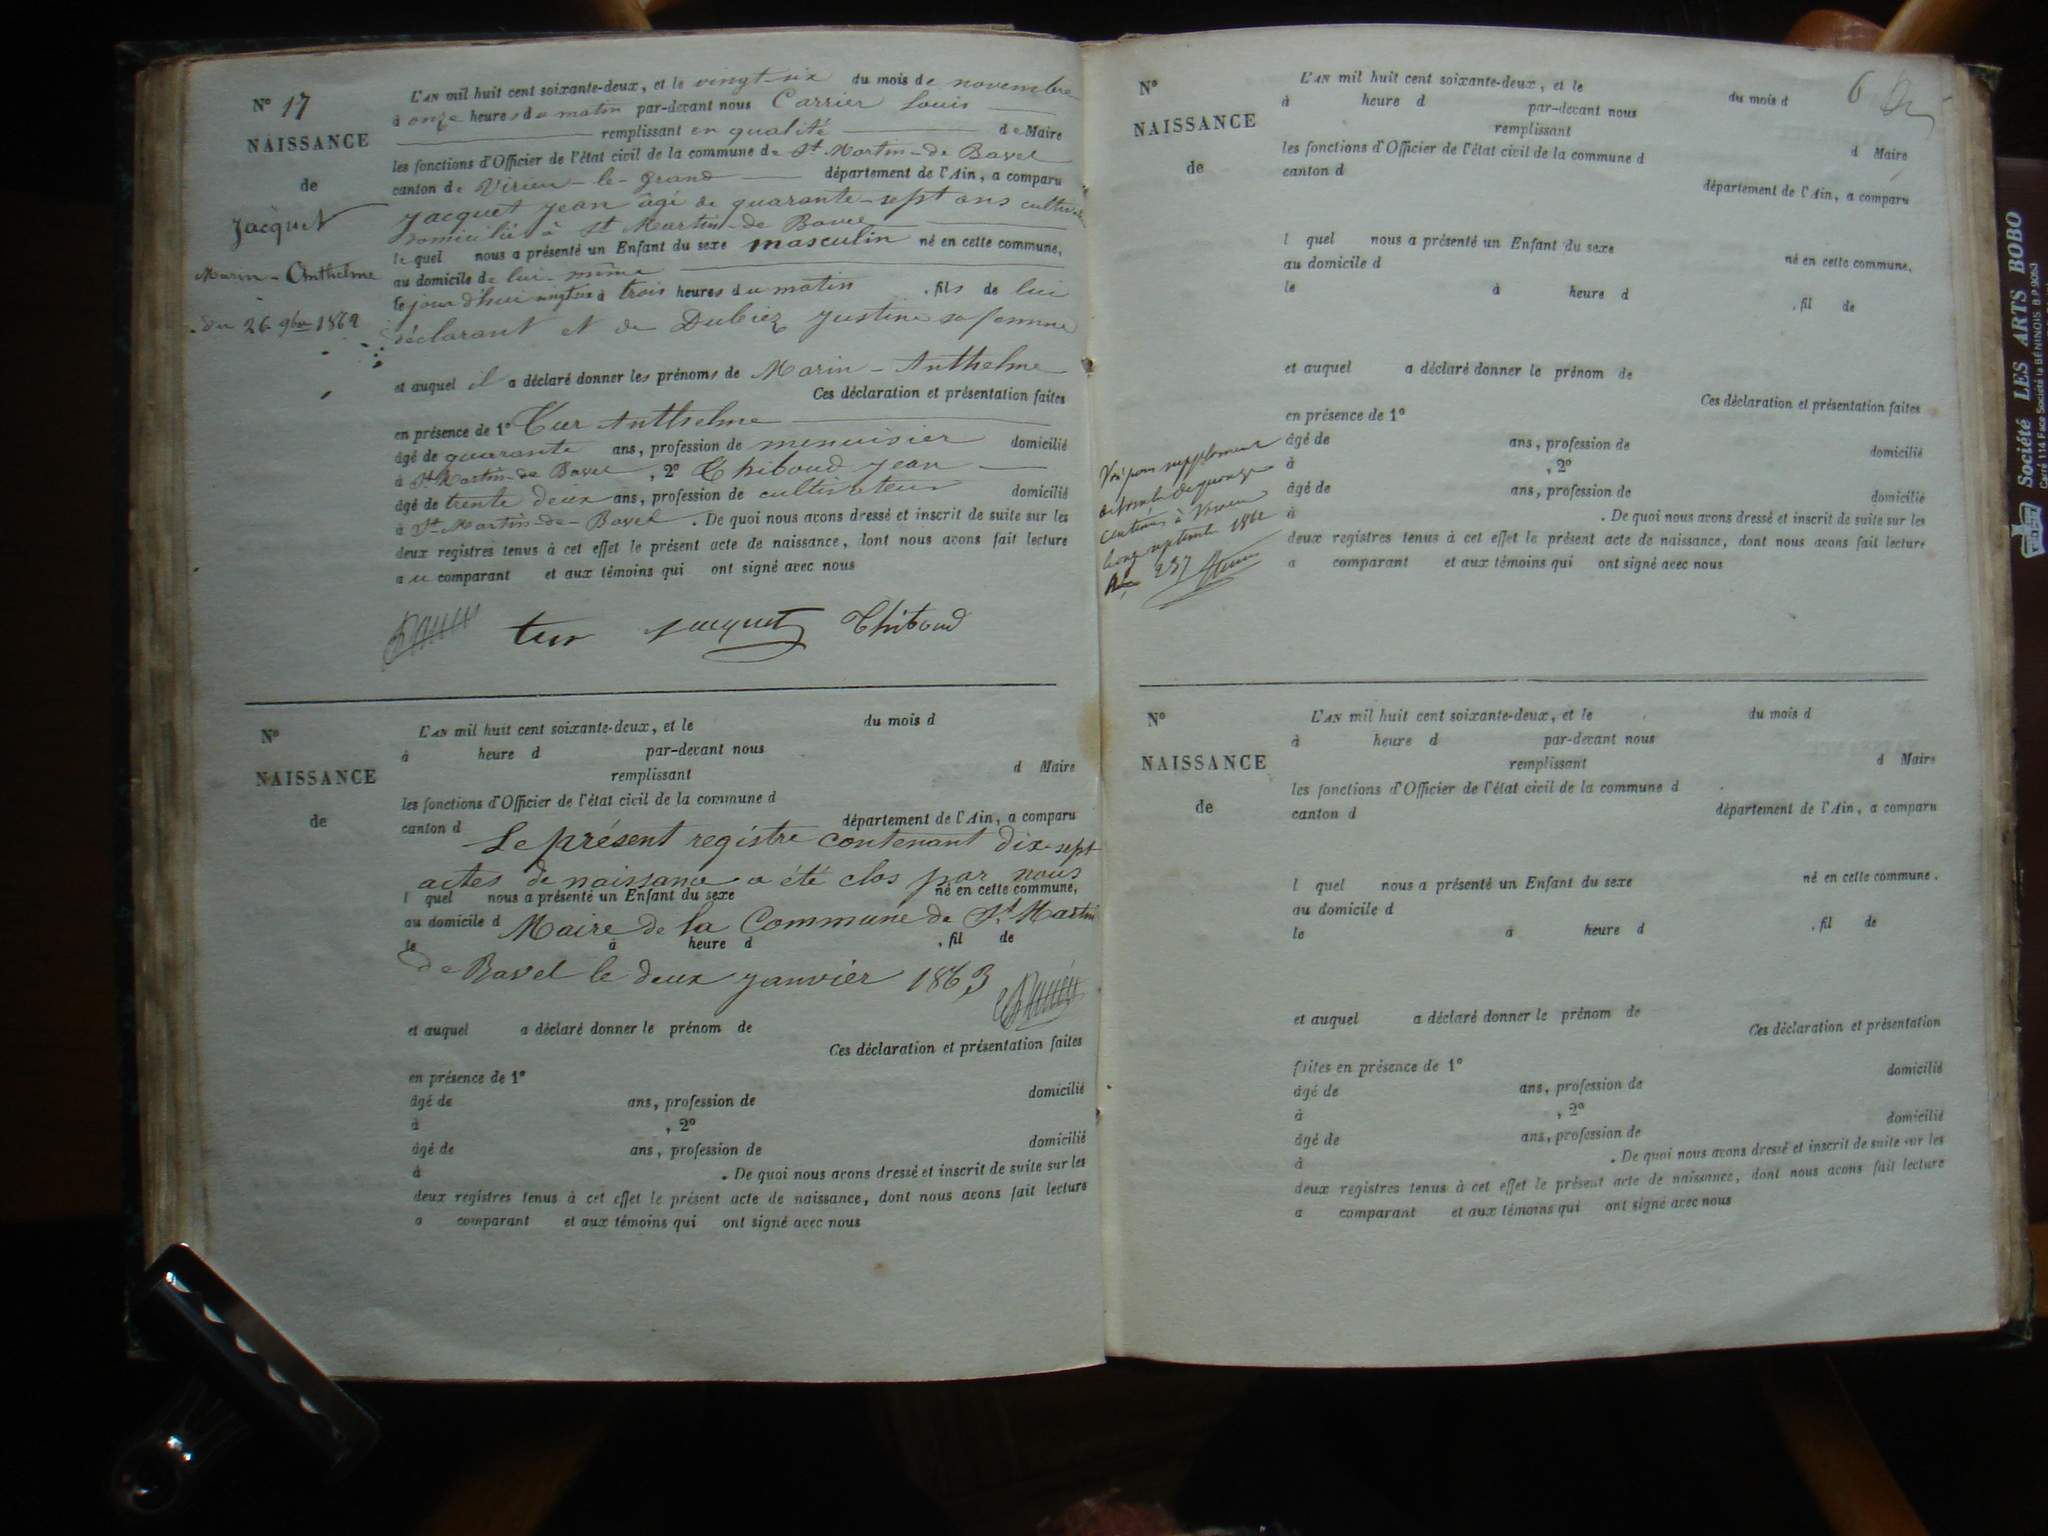 N° 17
NAISSANCE
de
Jacquet
Marin-Anthelme
du 26 9bre 1862
L'AN mil huit cent soixante-deux, et le vingt-six du mois de novembre
à onze heures du matin par-devant nous Carrier Louis
remplissant en qualité de Maire
les fonctions d'Officier de l'état civil de la commune de St Martin-de Bavel
canton de Virieu-le-grand département de l'Ain, a comparu
Jacquet Jean âgé de quarante-sept ans
domicilié à St Martin-de Bavel
lequel nous a présenté un Enfant du sexe masculin né en cette commune,
au domicile de lui-même
le jourd'hui vingt six à trois heures du matin , fils de lui
déclarant et de Dubiez Justine sa femme
et auquel il a déclaré donner les prénoms de Marin-Anthelme
Ces déclaration et présentation faites
en présence de 1° Tur Anthelme
âgé de quarante ans, profession de menuisier domicilié
à St Martin-de Bavel , 2° Thiboud Jean
âgé de trente deux ans, profession de cultivateur domicilié
à St Martin-de-Bavel . De quoi nous avons dressé et inscrit de suite sur les
deux registres tenus à cet effet le présent acte de naissance, dont nous avons fait lecture
au comparant et aux témoins qui ont signé avec nous
tur Jacquet Thiboud
N°
NAISSANCE
de
L'AN mil huit cent soixante-deux, et le du mois d
à heure d par-devant nous
remplissant d Maire
les fonctions d'Officier de l'état civil de la commune d
canton d département de l'Ain, a comparu
Le présent registre contenant dix-sept
actes de naissance a été clos par nous
l quel nous a présenté un Enfant du sexe né en cette commune,
au domicile d
Maire de la Commune de St Martin
le à heure d , fil de
de Bavel le deux janvier 1863
et auquel a déclaré donner le prénom de
Ces déclaration et présentation faites
en présence de 1°
âgé de ans, profession de domicilié
à , 2°
âgé de ans, profession de domicilié
à . De quoi nous avons dressé et inscrit de suite sur les
deux registres tenus à cet effet le présent acte de naissance, dont nous avons fait lecture
a comparant et aux témoins qui ont signé avec nous
6
N°
NAISSANCE
de
L'AN mil huit cent soixante-deux, et le du mois d
à heure d par-devant nous
remplissant d Maire
les fonctions d'Officier de l'état civil de la commune d
canton d département de l'Ain, a comparu
l quel nous a présenté un Enfant du sexe né en cette commune,
au domicile d
le à heure d , fil de
et auquel a déclaré donner le prénom de
Ces déclaration et présentation faites
en présence de 1°
âgé de ans, profession de domicilié
à , 2°
âgé de ans, profession de domicilié
à . De quoi nous avons dressé et inscrit de suite sur les
deux registres tenus à cet effet le présent acte de naissance, dont nous avons fait lecture
a comparant et aux témoins qui ont signé avec nous
pour supplément
centimes à Virieu
septembre 1862
237
N°
NAISSANCE
de
L'AN mil huit cent soixante-deux, et le du mois d
à heure d par-devant nous
remplissant d Maire
les fonctions d'Officier de l'état civil de la commune d
canton d département de l'Ain, a comparu
l quel nous a présenté un Enfant du sexe né en cette commune.
au domicile d
le à heure d , fil de
et auquel a déclaré donner le prénom de
Ces déclaration et présentation
faites en présence de 1° domicilié
âgé de ans, profession de
à , 2° domicilié
âgé de ans, profession de
à . De quoi nous avons dressé et inscrit de suite sur les
deux registres tenus à cet effet le présent acte de naissance, dont nous avons fait lecture
a comparant et aux témoins qui ont signé avec nous
Société LES ARTS BOBO
Carré 114 Face Société la BÉNINOIS. B.P.9063